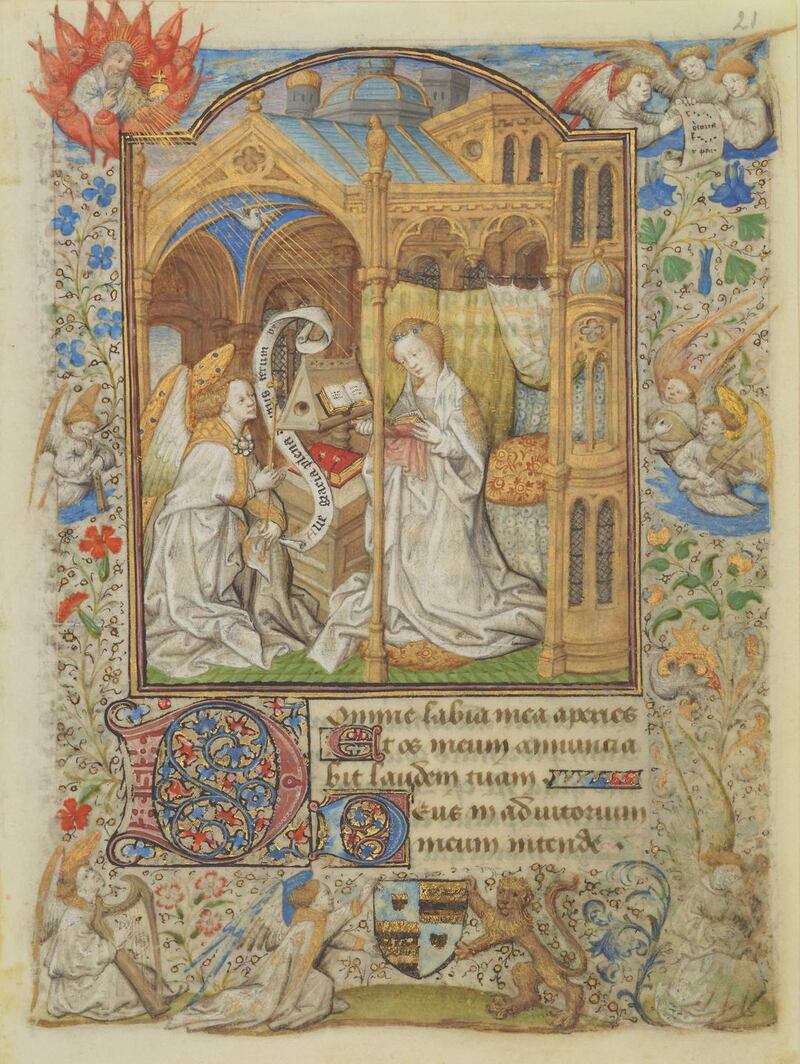 21
Ave gracia plena dominus tecum
Domine labia mea aperies
Et os meum annuncia
bit laudem tuam
Deus in adiutorium
meum intende .